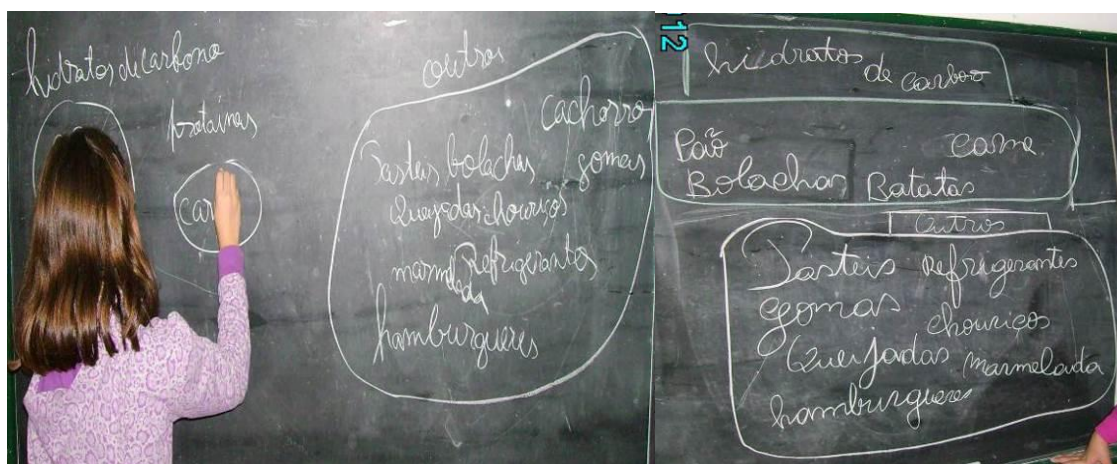 hidratos de carbono
proteinas
car
outros
cachorro
Pasteis bolachas gomas
Queijadas chouriços
marmelada Refrigerantes
hamburgueres
12
hidratos de carbono
Pão carne
Bolachas Batatas
Outros
Pasteis Refrigerantes
gomas chouriços
Queijadas marmelada
hamburgueres